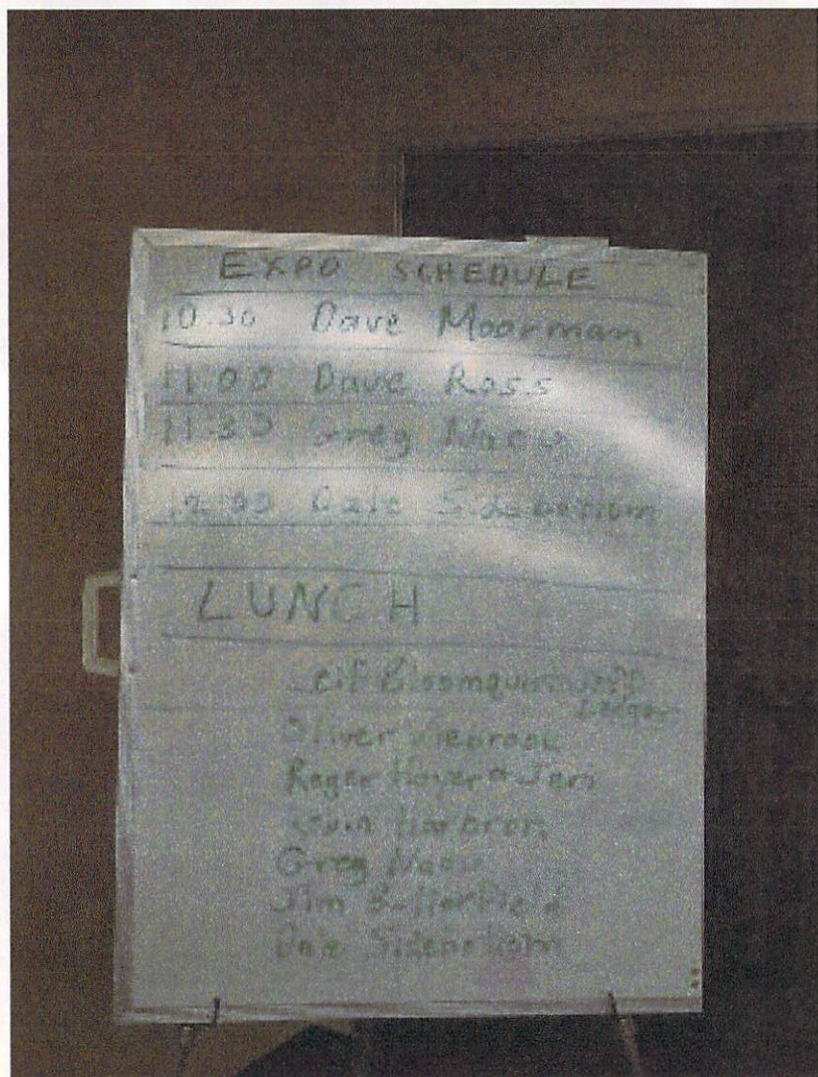 EXPO SCHEDULE
10:30 Dave Moorman
11:00 Dave Ross
11:30 Greg Nacu
12:00 Dale Sidebottom
LUNCH
Leif Bloomquist Jeff
Ledger
Oliver Viebrook
Roger Hoyer & Jeri
Kevin Harbron
Greg Nacu
Jim Butterfield
Dale Sidebottom